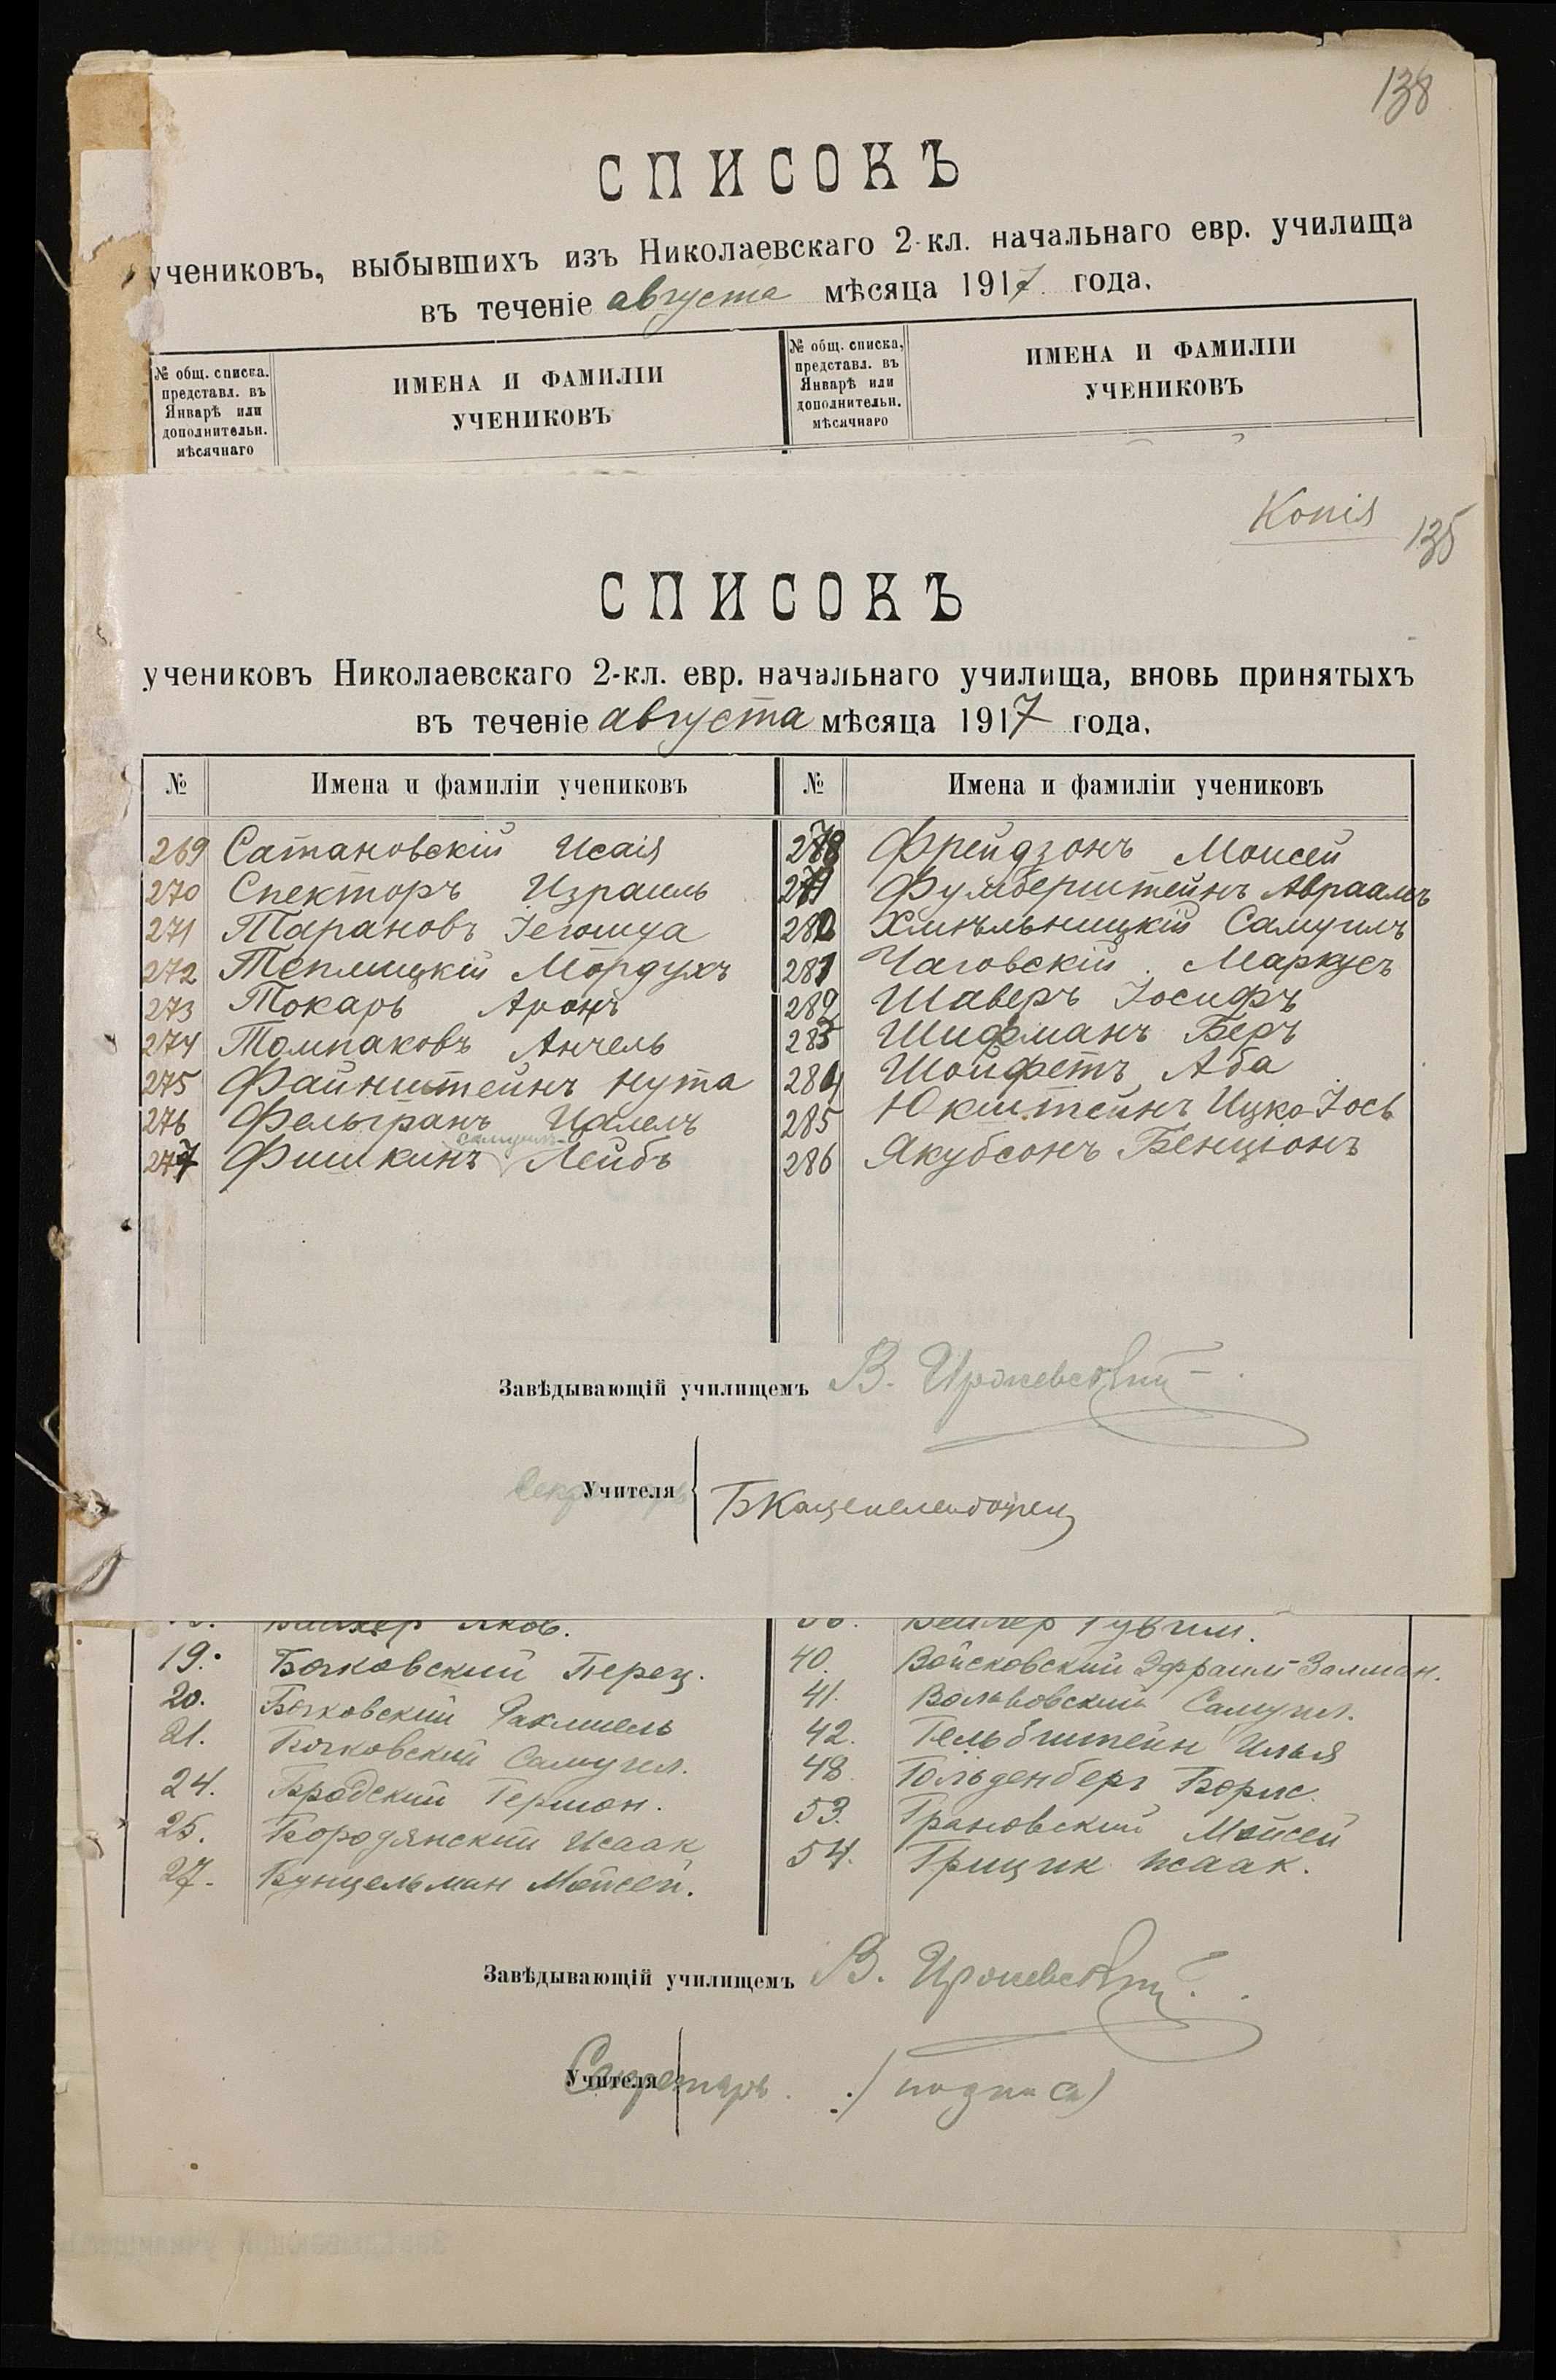 138
СПИСОКЪ
учениковъ, выбывшихъ изъ Николаевскаго 2-кл. начальнаго евр. училища
въ теченіе августа мѣсяца 1917 года.
№ общ. списка. представл. въ Январѣ или дополнительн. мѣсячнаго
ИМЕНА И ФАМИЛІИ УЧЕНИКОВЪ
№ общ. списка, представл. въ Январѣ или дополнительн. мѣсячнаго
ИМЕНА И ФАМИЛІИ УЧЕНИКОВЪ
Копія
135
СПИСОКЪ
учениковъ Николаевскаго 2-кл. евр. начальнаго училища, вновь принятыхъ
въ теченіе августа мѣсяца 1917 года.
№ Имена и фамиліи учениковъ
269 Сатановскій Исаія
270 Спекторъ Израиль
271 Тарановъ Іегошуа
272 Теплицкій Мордухъ
273 Токарь Аронъ
274 Томпаковъ Анчель
275 Файнштейнъ Нута
276 Фельгранъ
самуилъ
277 Фишкинъ Лейбъ
№ Имена и фамиліи учениковъ
278 Фрейдзонъ Моисей
279 Авраамъ
280 Хмѣльницкій Самуилъ
281 Чаговскій Маркусъ
282 Шаверъ Іосифъ
283 Шифманъ Беръ
284 Шойфетъ Аба
285 Юкштейнъ Ицко-Іось
286 Якубсонъ Бенціонъ
Завѣдывающій училищемъ В.
Учителя
19. Бочковский Перец.
20. Бочковский
21. Бочковский Самуил.
24. Бродский Герман.
25. Бородянский Исаак
27. Бунцельман Мойсей.
40. Войсковский Эфраим-Залман.
41. Вольвовский Самуил.
42. Гельбштейн Илья
48 Гольденберг Борис.
53. Грановский Мойсей
54. Грицик Исаак.
Завѣдывающій училищемъ В.
Учителя
Секретарь. (подписи)